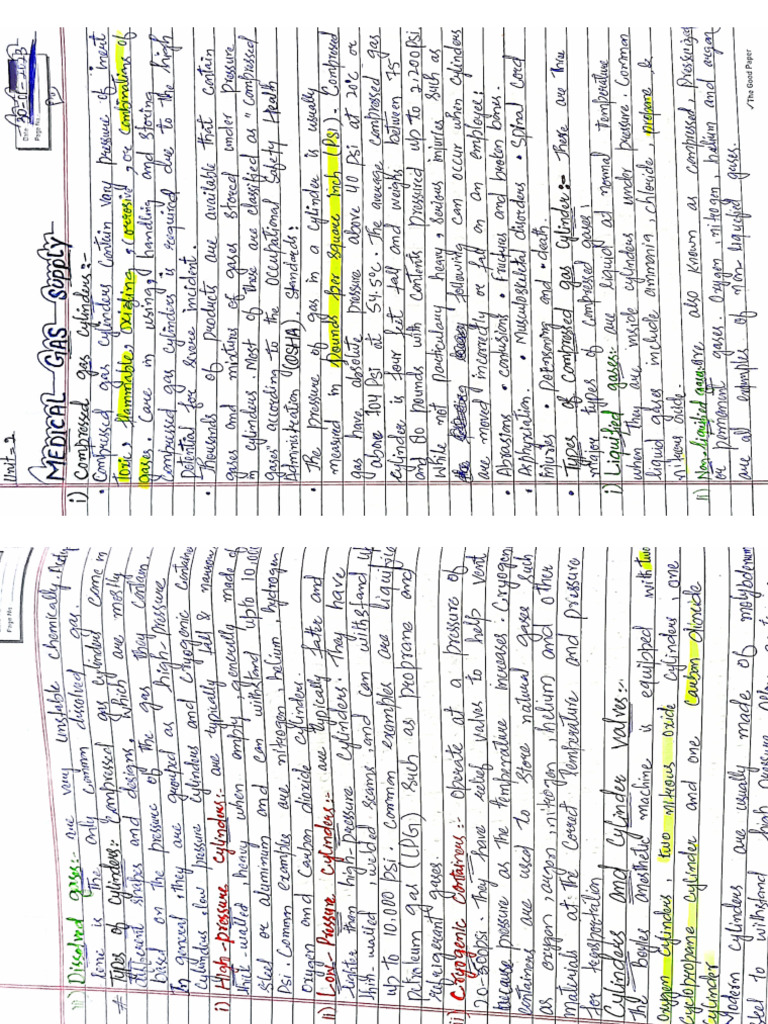 Unit = 2
Date 30-01-2023
Page No.
MEDICAL GAS SUPPLY
i) Compressed gas cylinders:-
• Compressed gas cylinders contain vary pressure of inert
Toxic, flammable, oxidizing, corrosive, or combinations of
gases. Care in using, handling and storing
compressed gas cylinders is required due to the high
Potential for severe incident.
• Thousands of products are available that contain
gases and mixtures of gases stored under pressure
in cylinders. Most of these are classified as "compressed
gases" according to the Occupational Safety Health
Administration (OSHA). Standards:
• The pressure of gas in a cylinder is usually
measured in Pounds per square inch (PSI). Compressed
gas have absolute pressure above 40 Psi at 20°C or
above 104 Psi at 54.5°C. The average compressed gas
cylinder is four feet tall and weighs between 75
and 80 pounds with contents pressurized up to 2,200Psi
While not particularly heavy, serious injuries such as
the following can occur when cylinders
are moved incorrectly or fall on an employee:
• Abrasions • contusions • Fractures and broken bones.
• Asphyxiation. • Musculoskeletal disorders • Spinal cord
injuries • Poisoning and • death.
• Types of compressed gas cylinder:- There are three
major types of compressed gases:
i) Liquified gases:- are liquid at normal temperature
when they are inside cylinders under pressure. Common
liquid gases include ammonia, chloride, propane, &
nitrous oxide.
ii) Non-liquified gases:- are also known as compressed, Pressurized
or permanent gases. Oxygen, nitrogen, helium and argon
are all examples of non liquified gases.
✓The Good Paper
Page No
iii) Dissolved gases:- are very unstable chemically. Acety
lene is the only common dissolved gas.
* Types of cylinders:- Compressed gas cylinders come in
different shapes and designs, which are mostly
based on the pressure of the gas they contain.
In general, they are grouped as high-pressure
cylinders, low pressure cylinders and cryogenic containe
i) High-pressure cylinders:- are typically tall & narrow
thick-walled, heavy when empty, generally made of
steel or aluminum and can withstand upto 10,000
Psi. Common examples are nitrogen, helium, hydrogen
Oxygen and Carbon dioxide cylinders.
ii) Low-Pressure cylinders:- are typically fatter and
lighter than high-pressure cylinders. They have
thin-walled, welded seams, and can withstand U
up to 10,000 Psi. Common examples are liquified
Petroleum gas (LPG) Such as propane and
refrigerant gases.
iii) Cryogenic containers:- operate at a pressure of
20-300psi. They have relief valves to help vent
because pressure as the temperature increases. Cryogen
containers are used to store natural gases such
as oxygen, argon, nitrogen, helium and other
materials at the correct temperature and pressure
for transportation
Cylinders and Cylinder valves:-
The boyles anaesthetic machine is equipped with two
oxygen cylinders two nitrous oxide cylinders, one
cyclopropane cylinder and one Carbon dioxide
cylinder
Modern cylinders are usually made of molybdenum
steel to withstand high pressure